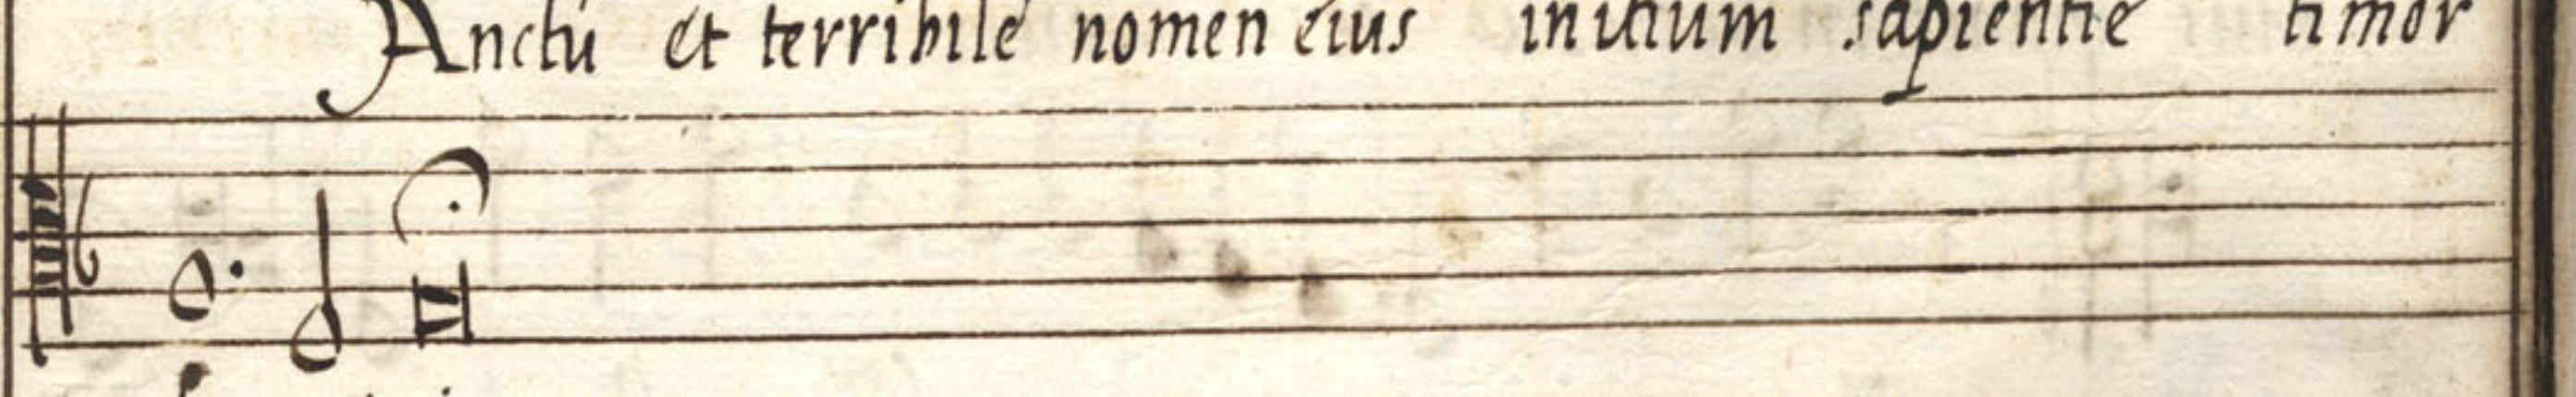 Anctū et terribile nomen eius initium sapientie timor